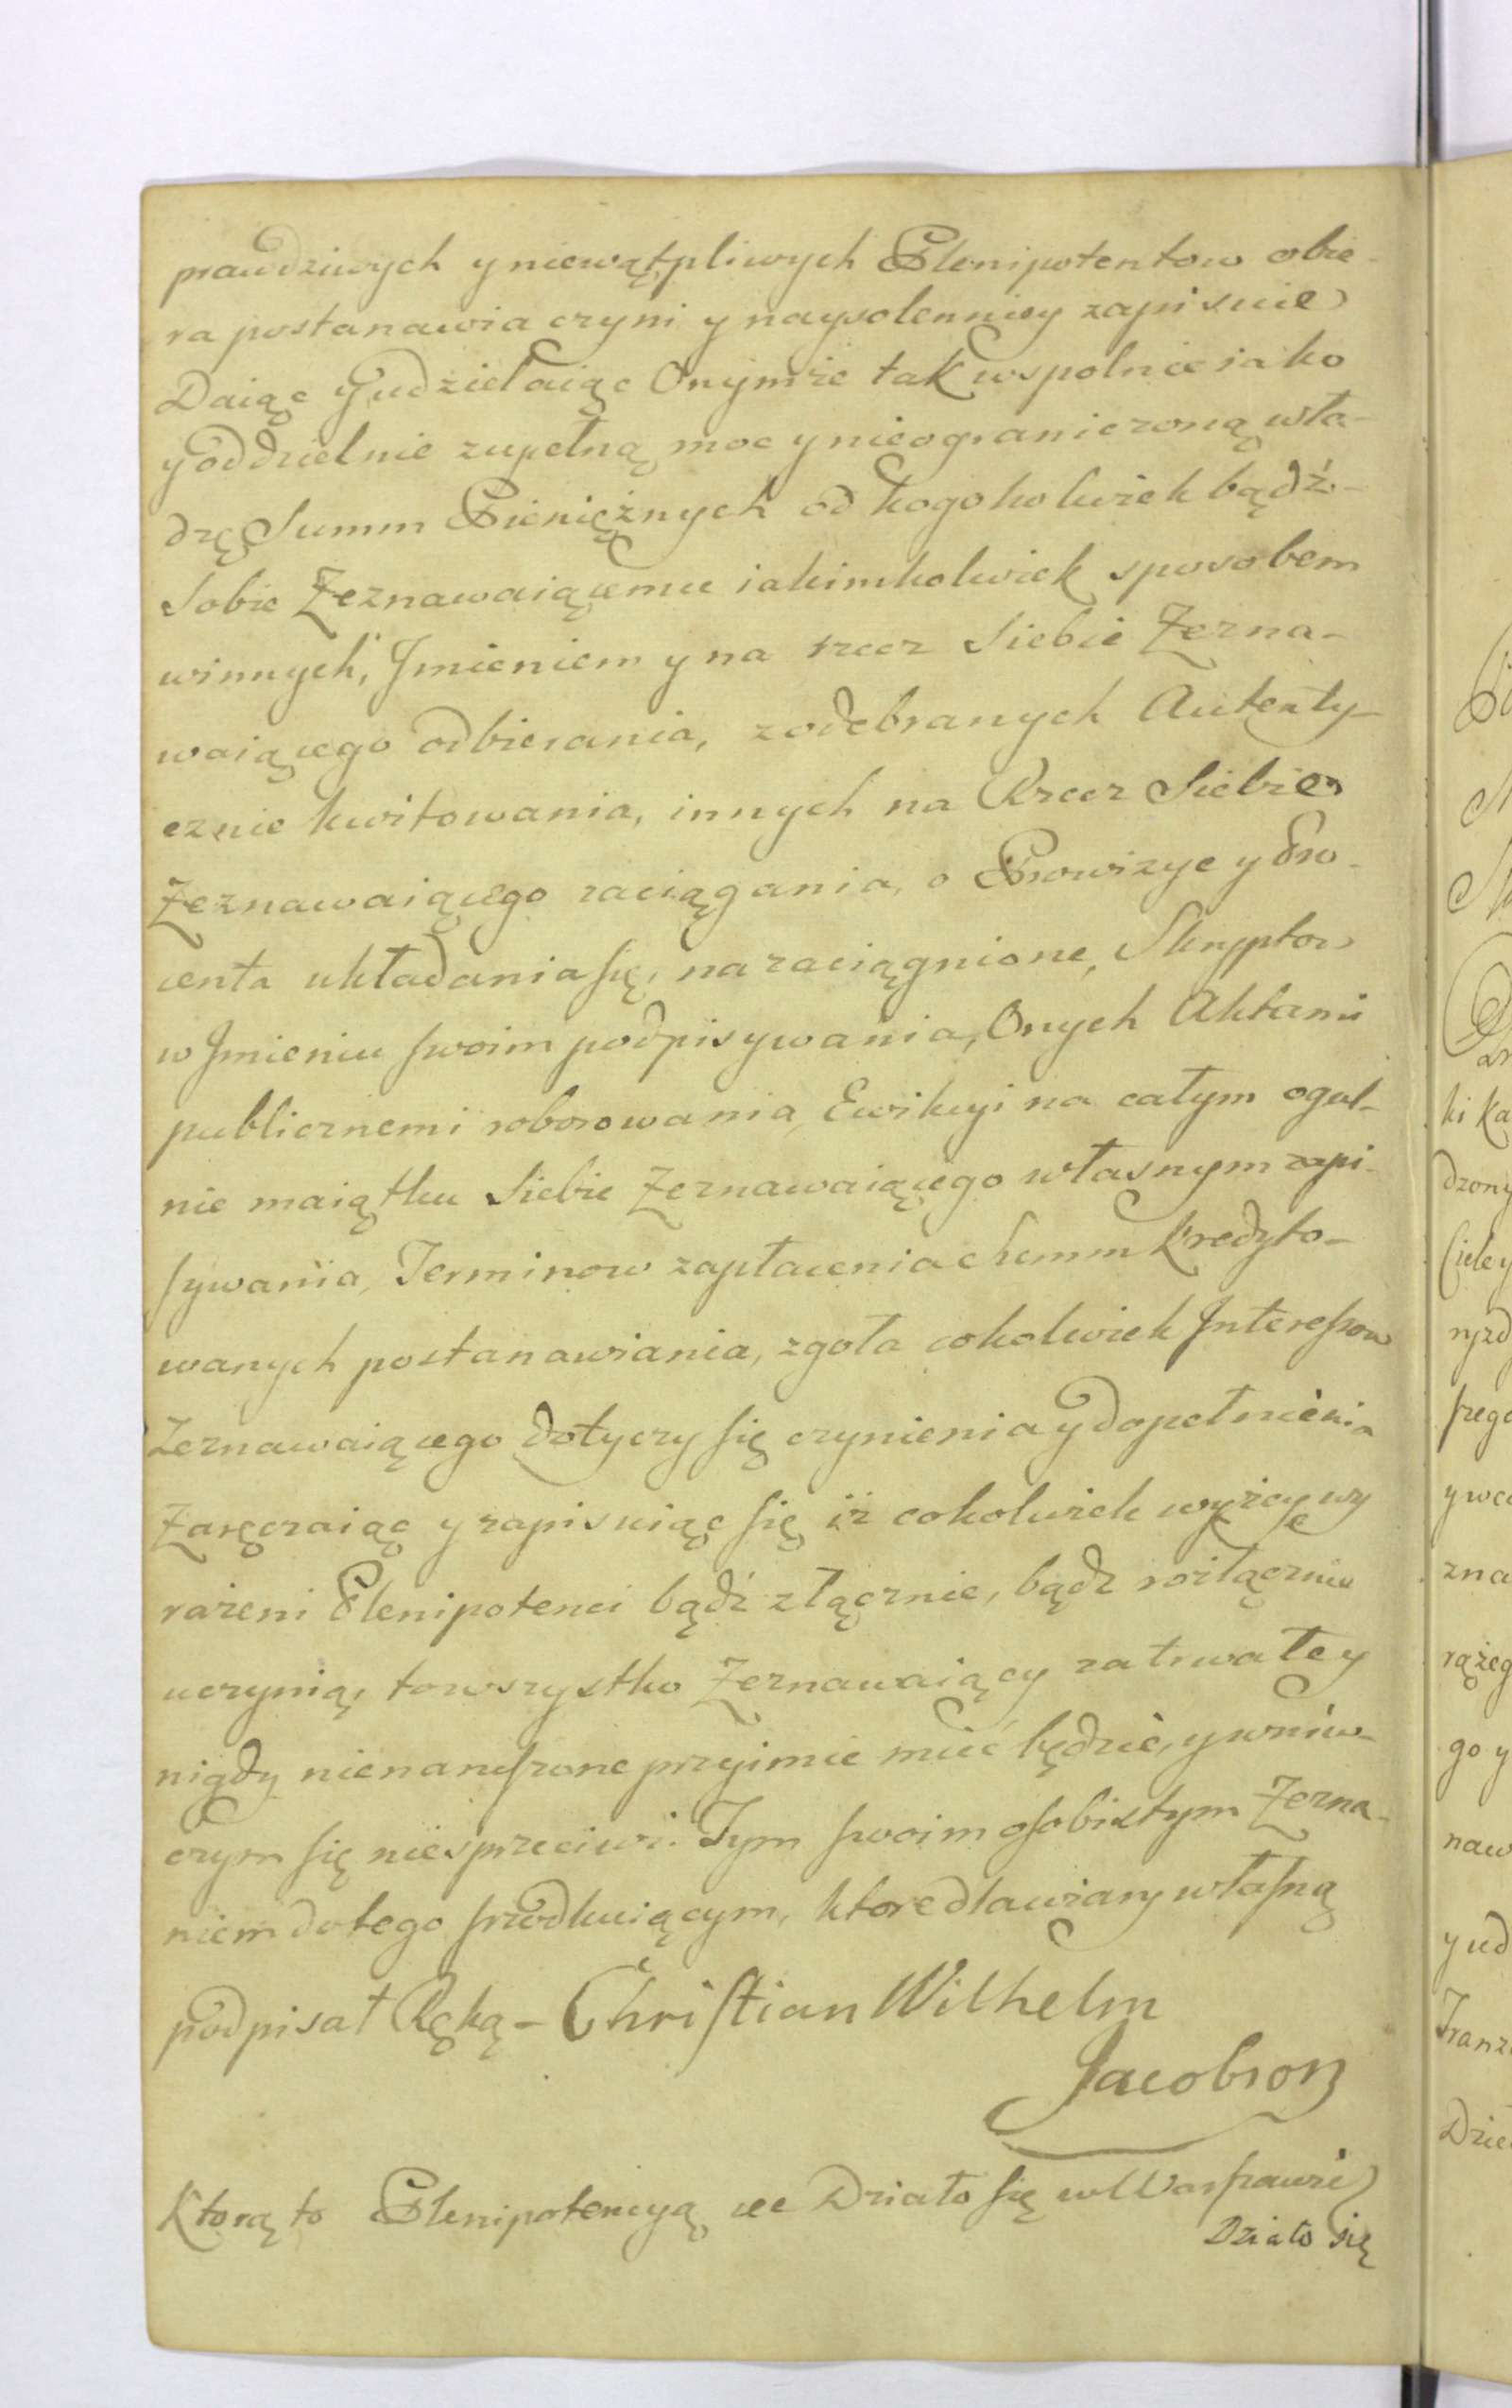 prawdziwych y niewątpliwych Plenipotentow obie-
ra postanawia czyni y naysolenniey zapisuie
Daiąc y udzielaiąc Onymże tak wspolnie iako
y oddzielnie zupełną moc y nieograniczoną wła-
dzę Summ Pieniężnych od kogokolwiek bądź-
Sobie Zeznawaiącemu iakimkolwiek sposobem
winnych, Jmieniem y na rzecz Siebie Zezna-
waiącego odbierania, z odebranych Autenty-
cznie kwitowania, innych na Rzecz Siebie
Zeznawaiącego zaciągania, o Prowizye y Pro-
centa układania się, na zaciągnione, Skryptow
w Jmieniu swoim podpisywania, Onych Aktami
publicznemi roborowania Ewikcyi na całym ogul-
nie maiątku Siebie Zeznawaiącego własnym zapi-
sywania, Terminow zapłacenia Summ kredyto-
wanych postanawiania, zgoła cokolwiek Jnteressow
Zeznawaiącego dotyczy się czynienia y dopełnienia
Zaręczaiąc y zapisuiąc się iż cokolwiek wyżey wy
rażeni Plenipotenci bądź złącznie, bądz rozłącznie
uczynią, to wszystko Zeznawaiący za trwałe y
nigdy nienaruszone przyimie mieć będzie, y wniw-
czym się niesprzeciwi. Tym swoim osobistym Zezna-
niem do tego srzodkuiącym, ktore dla wiary własną
podpisał Ręką - Christian Wilhelm
Jacobson
Ktorą to Plenipotencyą etc Działo się w Warszawie
Działo się
ki Ka
dzony
Cieley
rzd
szego
y wca
zna
rążeg
go y
naw
y ud
Franz
Dzie